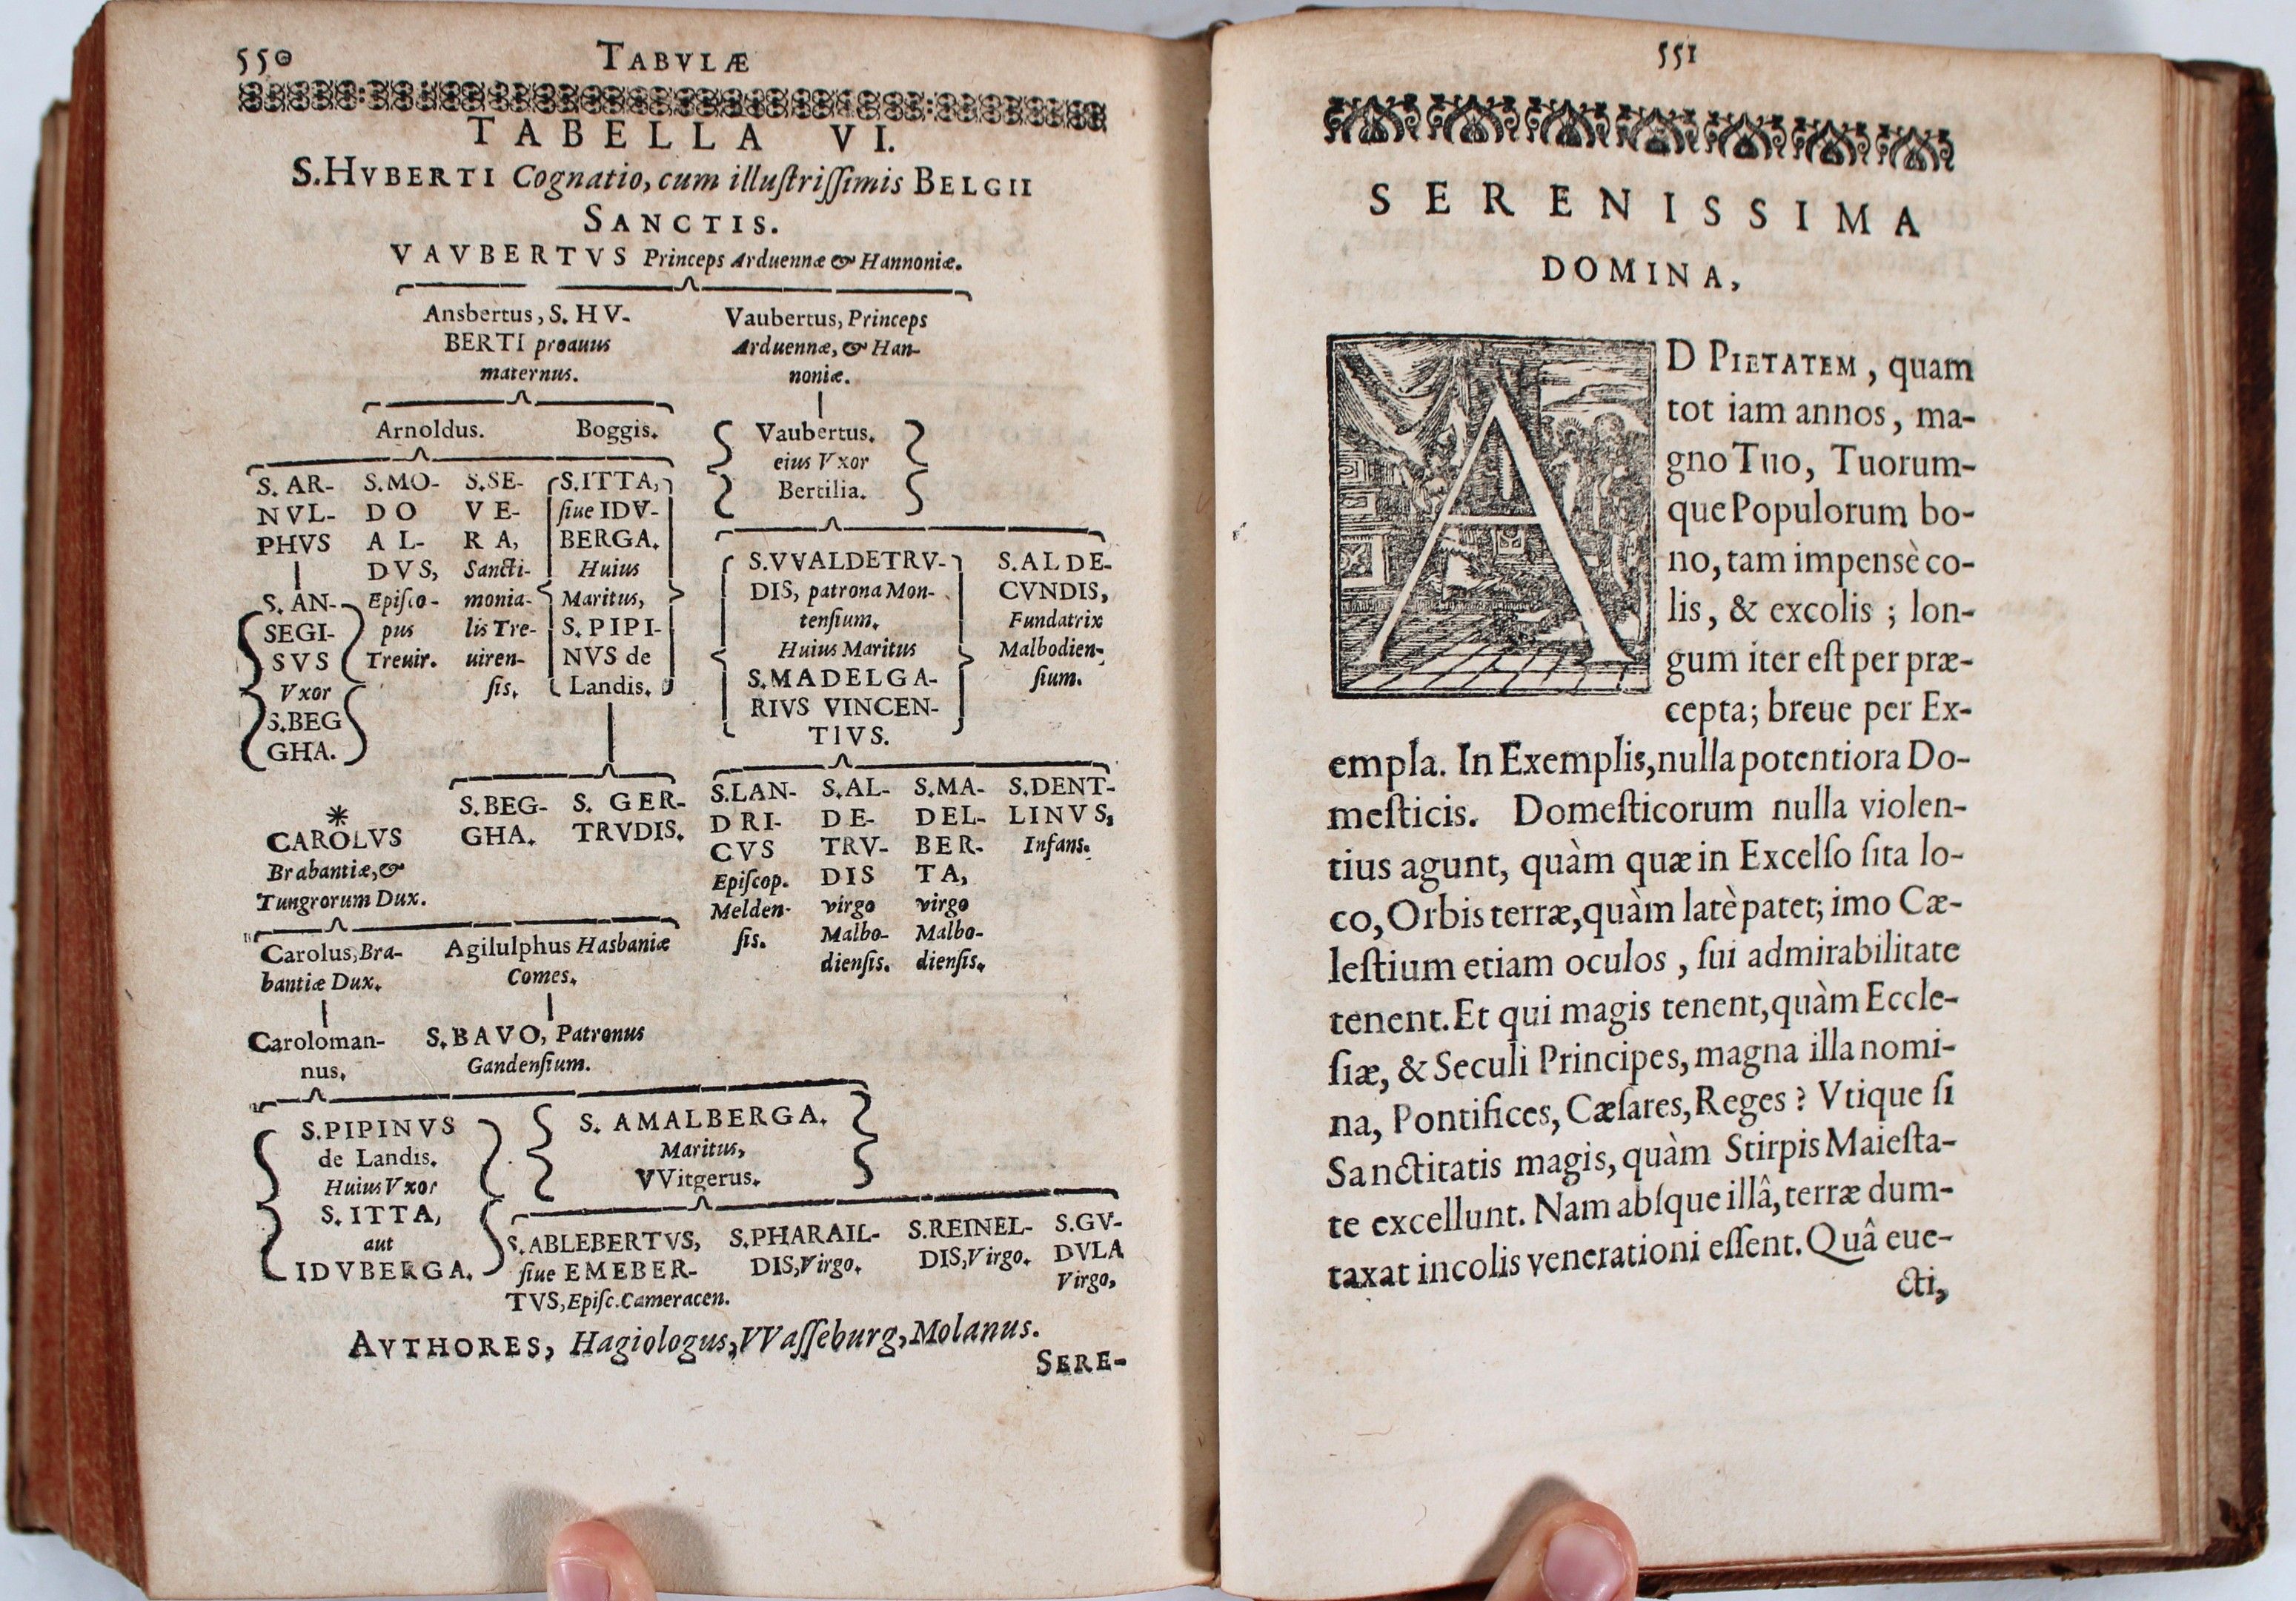 550
TABVLÆ
TABELLA VI.
S.HVBERTI Cognatio, cum illuſtriſſimis BELGII
SANCTIS.
VAVBERTVS Princeps Arduennæ & Hannoniæ.
Ansbertus, S. HV-
BERTI proauus
maternus.
Vaubertus, Princeps
Arduennæ, & Han-
noniæ.
Arnoldus.
Boggis.
Vaubertus.
eius Vxor
Bertilia.
S. AR-
NVL-
PHVS
S. AN-
SEGI-
SVS
Vxor
S.BEG
GHA.
S.MO-
DO
AL-
DVS,
Epiſco-
pus
Treuir.
S.SE-
VE-
RA,
Sancti-
monia-
lis Tre-
uiren-
ſis.
S.ITTA,
ſiue IDV-
BERGA.
Huius
Maritus,
S. PIPI-
NVS de
Landis.
S.VVALDETRV-
DIS, patrona Mon-
tenſium.
Huius Maritus
S.MADELGA-
RIVS VINCEN-
TIVS.
S.ALDE-
CVNDIS,
Fundatrix
Malbodien-
ſium.
*
CAROLVS
Brabantiæ, &
Tungrorum Dux.
S.BEG-
GHA.
S. GER-
TRVDIS.
S.LAN-
DRI-
CVS
Epiſcop.
Melden-
ſis.
S.AL-
DE-
TRV-
DIS
virgo
Malbo-
dienſis.
S.MA-
DEL-
BER-
TA,
virgo
Malbo-
dienſis.
S.DENT-
LINVS,
Infans.
Carolus, Bra-
bantiæ Dux.
Agilulphus Hasbaniæ
Comes.
Caroloman-
nus.
S.BAVO, Patronus
Gandenſium.
S.PIPINVS
de Landis.
Huius Vxor
S. ITTA,
aut
IDVBERGA.
S. AMALBERGA.
Maritus,
VVitgerus.
S.ABLEBERTVS,
ſiue EMEBER-
TVS, Epiſc. Cameracen.
S.PHARAIL-
DIS, Virgo.
S.REINEL-
DIS, Virgo.
S.GV-
DVLA
Virgo,
AVTHORES, Hagiologus, VVaſſeburg, Molanus.
SERE-
551
SERENISSIMA
DOMINA,
AD PIETATEM, quam
tot iam annos, ma-
gno Tuo, Tuorum-
que Populorum bo-
no, tam impensè co-
lis, & excolis ; lon-
gum iter eſt per præ-
cepta; breue per Ex-
empla. In Exemplis, nulla potentiora Do-
meſticis. Domeſticorum nulla violen-
tius agunt, quàm quæ in Excelſo ſita lo-
co, Orbis terræ, quàm latè patet; imo Cæ-
leſtium etiam oculos, ſui admirabilitate
tenent. Et qui magis tenent, quàm Eccle-
ſiæ, & Seculi Principes, magna illa nomi-
na, Pontifices, Cæſares, Reges ? Vtique ſi
Sanctitatis magis, quàm Stirpis Maieſta-
te excellunt. Nam abſque illâ, terræ dum-
taxat incolis venerationi eſſent. Quâ eue-
cti,